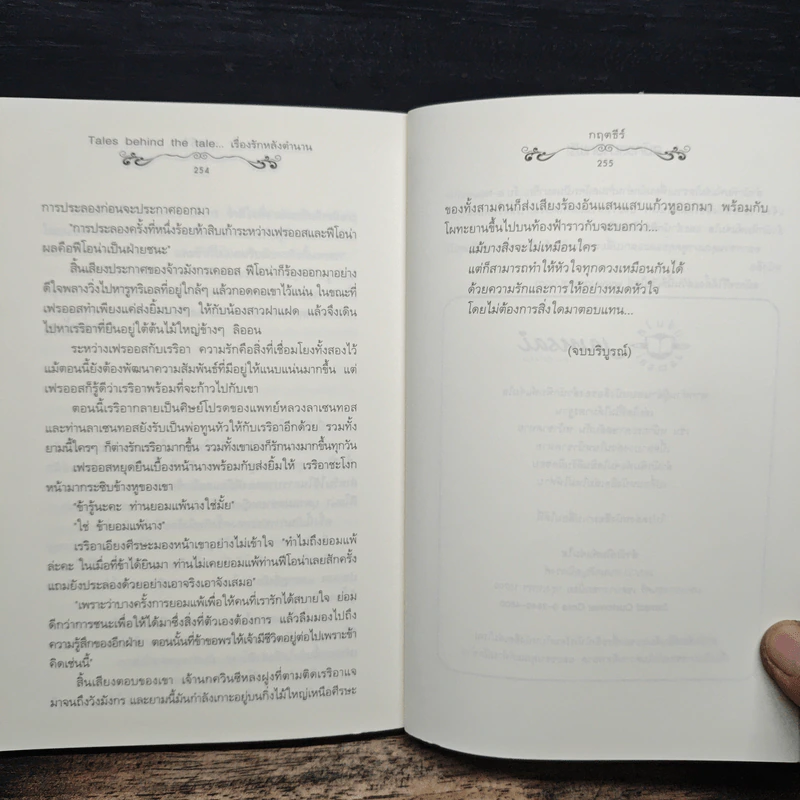 Tales behind the tale... เรื่องรักหลังตำนาน
254
การประลองก่อนจะประกาศออกมา
"การประลองครั้งที่หนึ่งร้อยห้าสิบเก้าระหว่างเฟรออสและฟีโอน่า
ผลคือฟีโอน่าเป็นฝ่ายชนะ"
สิ้นเสียงประกาศของจ้าวมังกรเคออส ฟีโอน่าก็ร้องออกมาอย่าง
ดีใจพลางวิ่งไปหารูทริเอลที่อยู่ใกล้ๆ แล้วกอดคอเขาไว้แน่น ในขณะที่
เฟรออสทำเพียงแค่ส่งยิ้มบางๆ ให้กับน้องสาวฝาแฝด แล้วจึงเดิน
ไปหาเรริอาที่ยืนอยู่ใต้ต้นไม้ใหญ่ข้างๆ ลิออน
ระหว่างเฟรออสกับเรริอา ความรักคือสิ่งที่เชื่อมโยงทั้งสองไว้
แม้ตอนนี้ยังต้องพัฒนาความสัมพันธ์ที่มีอยู่ให้แนบแน่นมากขึ้น แต่
เฟรออสก็รู้ดีว่าเรริอาพร้อมที่จะก้าวไปกับเขา
ตอนนี้เรริอากลายเป็นศิษย์โปรดของแพทย์หลวงลาเซนทอส
และท่านลาเซนทอสยังรับเป็นพ่อทูนหัวให้กับเรริอาอีกด้วย รวมทั้ง
ยามนี้ใครๆ ก็ต่างรักเรริอามากขึ้น รวมทั้งเขาเองก็รักนางมากขึ้นทุกวัน
เฟรออสหยุดยืนเบื้องหน้านางพร้อมกับส่งยิ้มให้ เรริอาชะโงก
หน้ามากระซิบข้างหูของเขา
"ข้ารู้นะคะ ท่านยอมแพ้นางใช่มั้ย"
"ใช่ ข้ายอมแพ้นาง"
เรริอาเอียงศีรษะมองหน้าเขาอย่างไม่เข้าใจ "ทำไมถึงยอมแพ้
ล่ะคะ ในเมื่อที่ข้าได้ยินมา ท่านไม่เคยยอมแพ้ท่านฟีโอน่าเลยสักครั้ง
แถมยังประลองด้วยอย่างเอาจริงเอาจังเสมอ"
"เพราะว่าบางครั้งการยอมแพ้เพื่อให้คนที่เรารักได้สบายใจ ย่อม
ดีกว่าการชนะเพื่อให้ได้มาซึ่งสิ่งที่ตัวเองต้องการ แล้วลืมมองไปถึง
ความรู้สึกของอีกฝ่าย ตอนนั้นที่ข้าขอพรให้เจ้ามีชีวิตอยู่ต่อไปเพราะข้า
คิดเช่นนี้"
สิ้นเสียงตอบของเขา เจ้านกควินซีหลงฝูงที่ตามติดเรริอาแจ
มาจนถึงวังมังกร และยามนี้มันกำลังเกาะอยู่บนกิ่งไม้ใหญ่เหนือศีรษะ
กฤตธีร์
255
ของทั้งสามคนก็ส่งเสียงร้องอันแสนแสบแก้วหูออกมา พร้อมกับ
โผทะยานขึ้นไปบนท้องฟ้าราวกับจะบอกว่า...
แม้บางสิ่งจะไม่เหมือนใคร
แต่ก็สามารถทำให้หัวใจทุกดวงเหมือนกันได้
ด้วยความรักและการให้อย่างหมดหัวใจ
โดยไม่ต้องการสิ่งใดมาตอบแทน...
(จบบริบูรณ์)